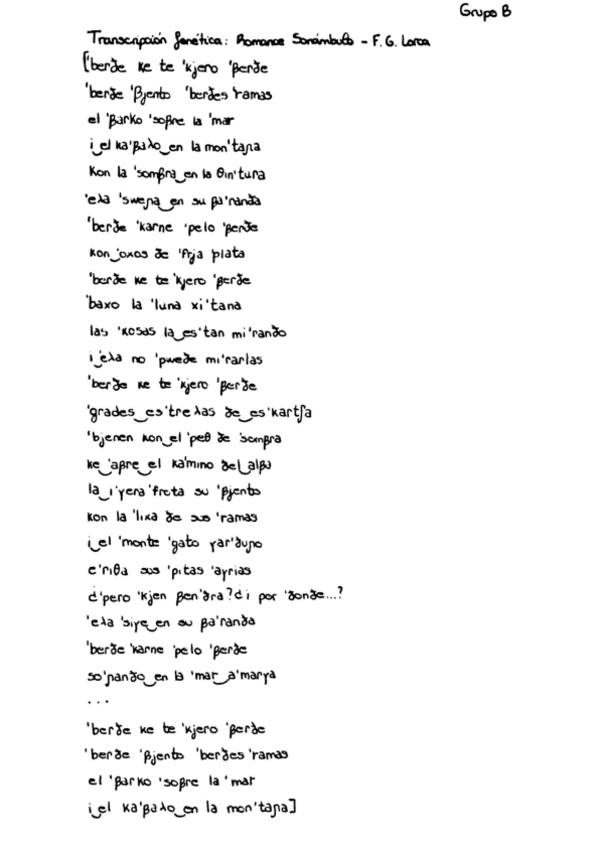 Grupo B
Transcripción fonética: Romance Sonámbulo - F. G. Lorca
['berðe ke te 'kjero 'βerðe
'berðe 'βjento 'berðes 'ramas
el 'βarko 'soβre la 'mar
i‿el ka'βaʎo‿en la mon'taɲa
kon la 'sombra‿en la θin'tura
'eʎa 'sweɲa‿en su βa'randa
'berðe 'karne 'pelo 'βerðe
kon‿'oxos de 'fɾja 'plata
'berðe ke te 'kjero 'βerðe
'baxo la 'luna xi'tana
las 'kosas la‿es'tan mi'rando
i‿'eʎa no 'pweðe mi'rarlas
'berðe ke te 'kjero 'βerðe
'grades‿es'treʎas de‿es'kartʃa
'bjenen kon‿el 'peθ de 'sombra
ke‿'aβre‿el ka'mino del‿alβa
la‿i'ɣera 'frota su 'βjento
kon la 'lixa de sus 'ramas
i‿el 'monte 'gato ɣar'duɲo
e'riθa sus 'pitas 'aɣrias
¿'pero 'kjen βen'dra? ¿i por 'ðonde...?
'eʎa 'siɣe‿en su βa'randa
'berðe 'karne 'pelo 'βerðe
so'ɲando‿en la 'mar‿a'marɣa
...
'berðe ke te 'kjero 'βerðe
'berðe 'βjento 'berðes 'ramas
el 'βarko 'soβre la 'mar
i‿el ka'βaʎo‿en la mon'taɲa]